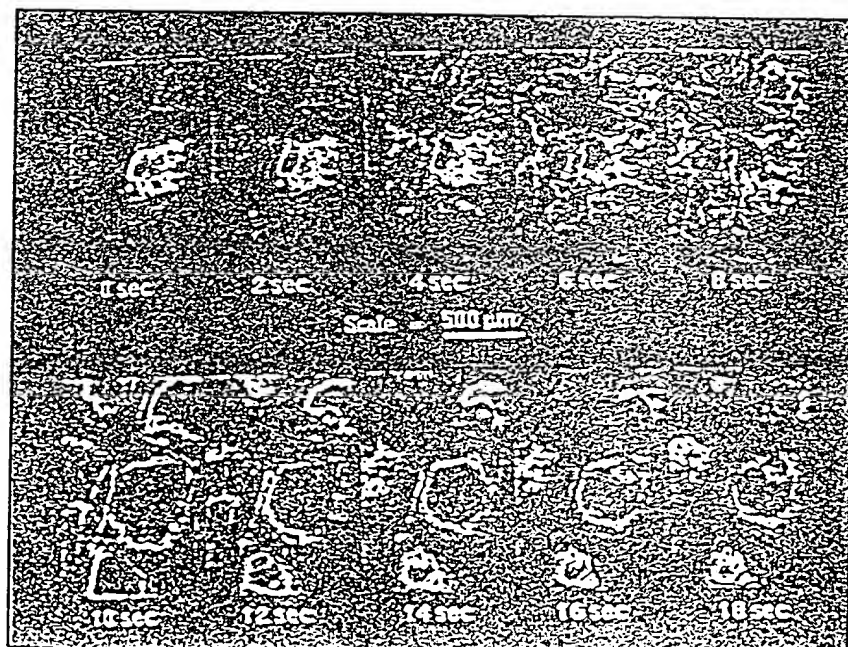 0 sec 2 sec 4 sec 6 sec 8 sec
Scale = 500 µm
10 sec 12 sec 14 sec 16 sec 18 sec